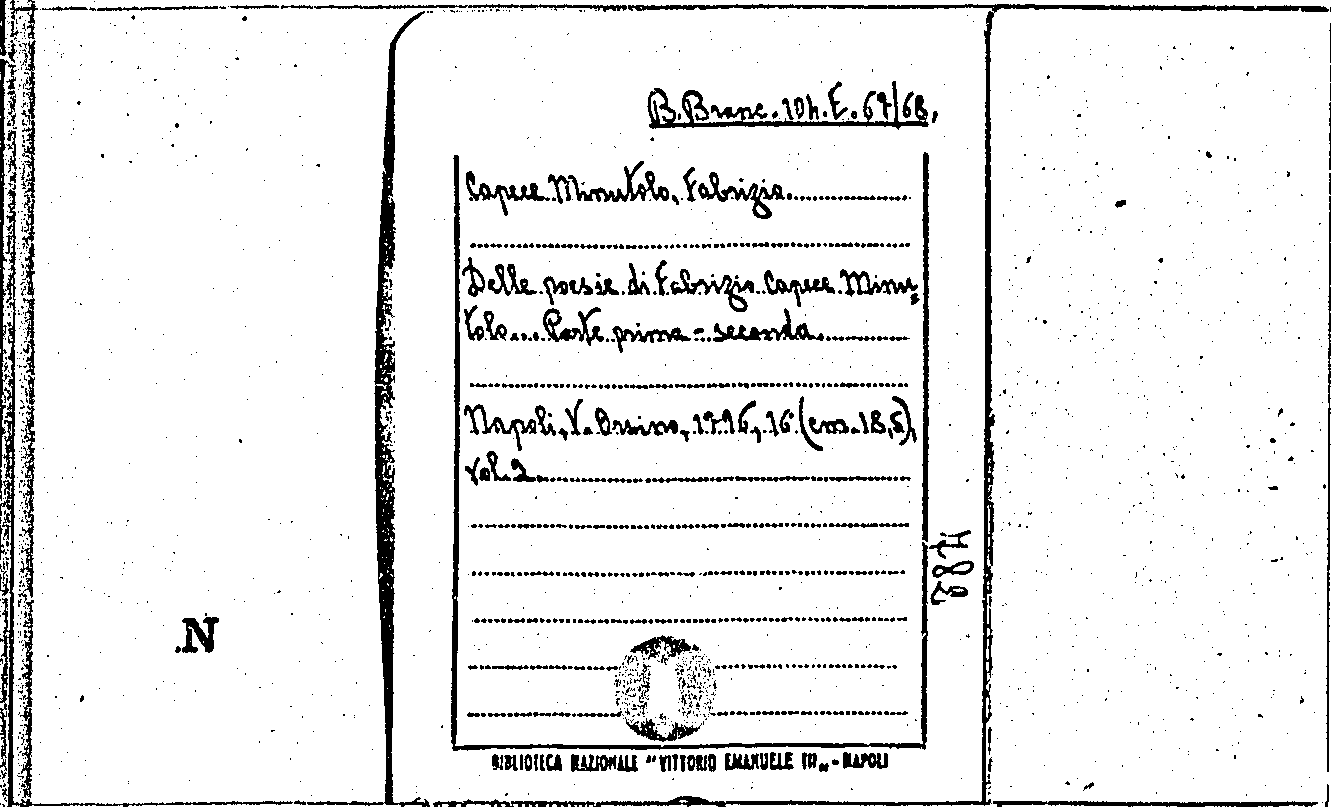 B. Branc. 104. E. 67/68.
Capece Minutolo, Fabrizio.
Delle poesie di Fabrizio Capece Minu-
tolo... Parte prima - seconda.
Napoli, V. Orsino, 1796, 16 (cm. 18,5),
vol. 2.
N
BIBLIOTECA NAZIONALE "VITTORIO EMANUELE III" - NAPOLI